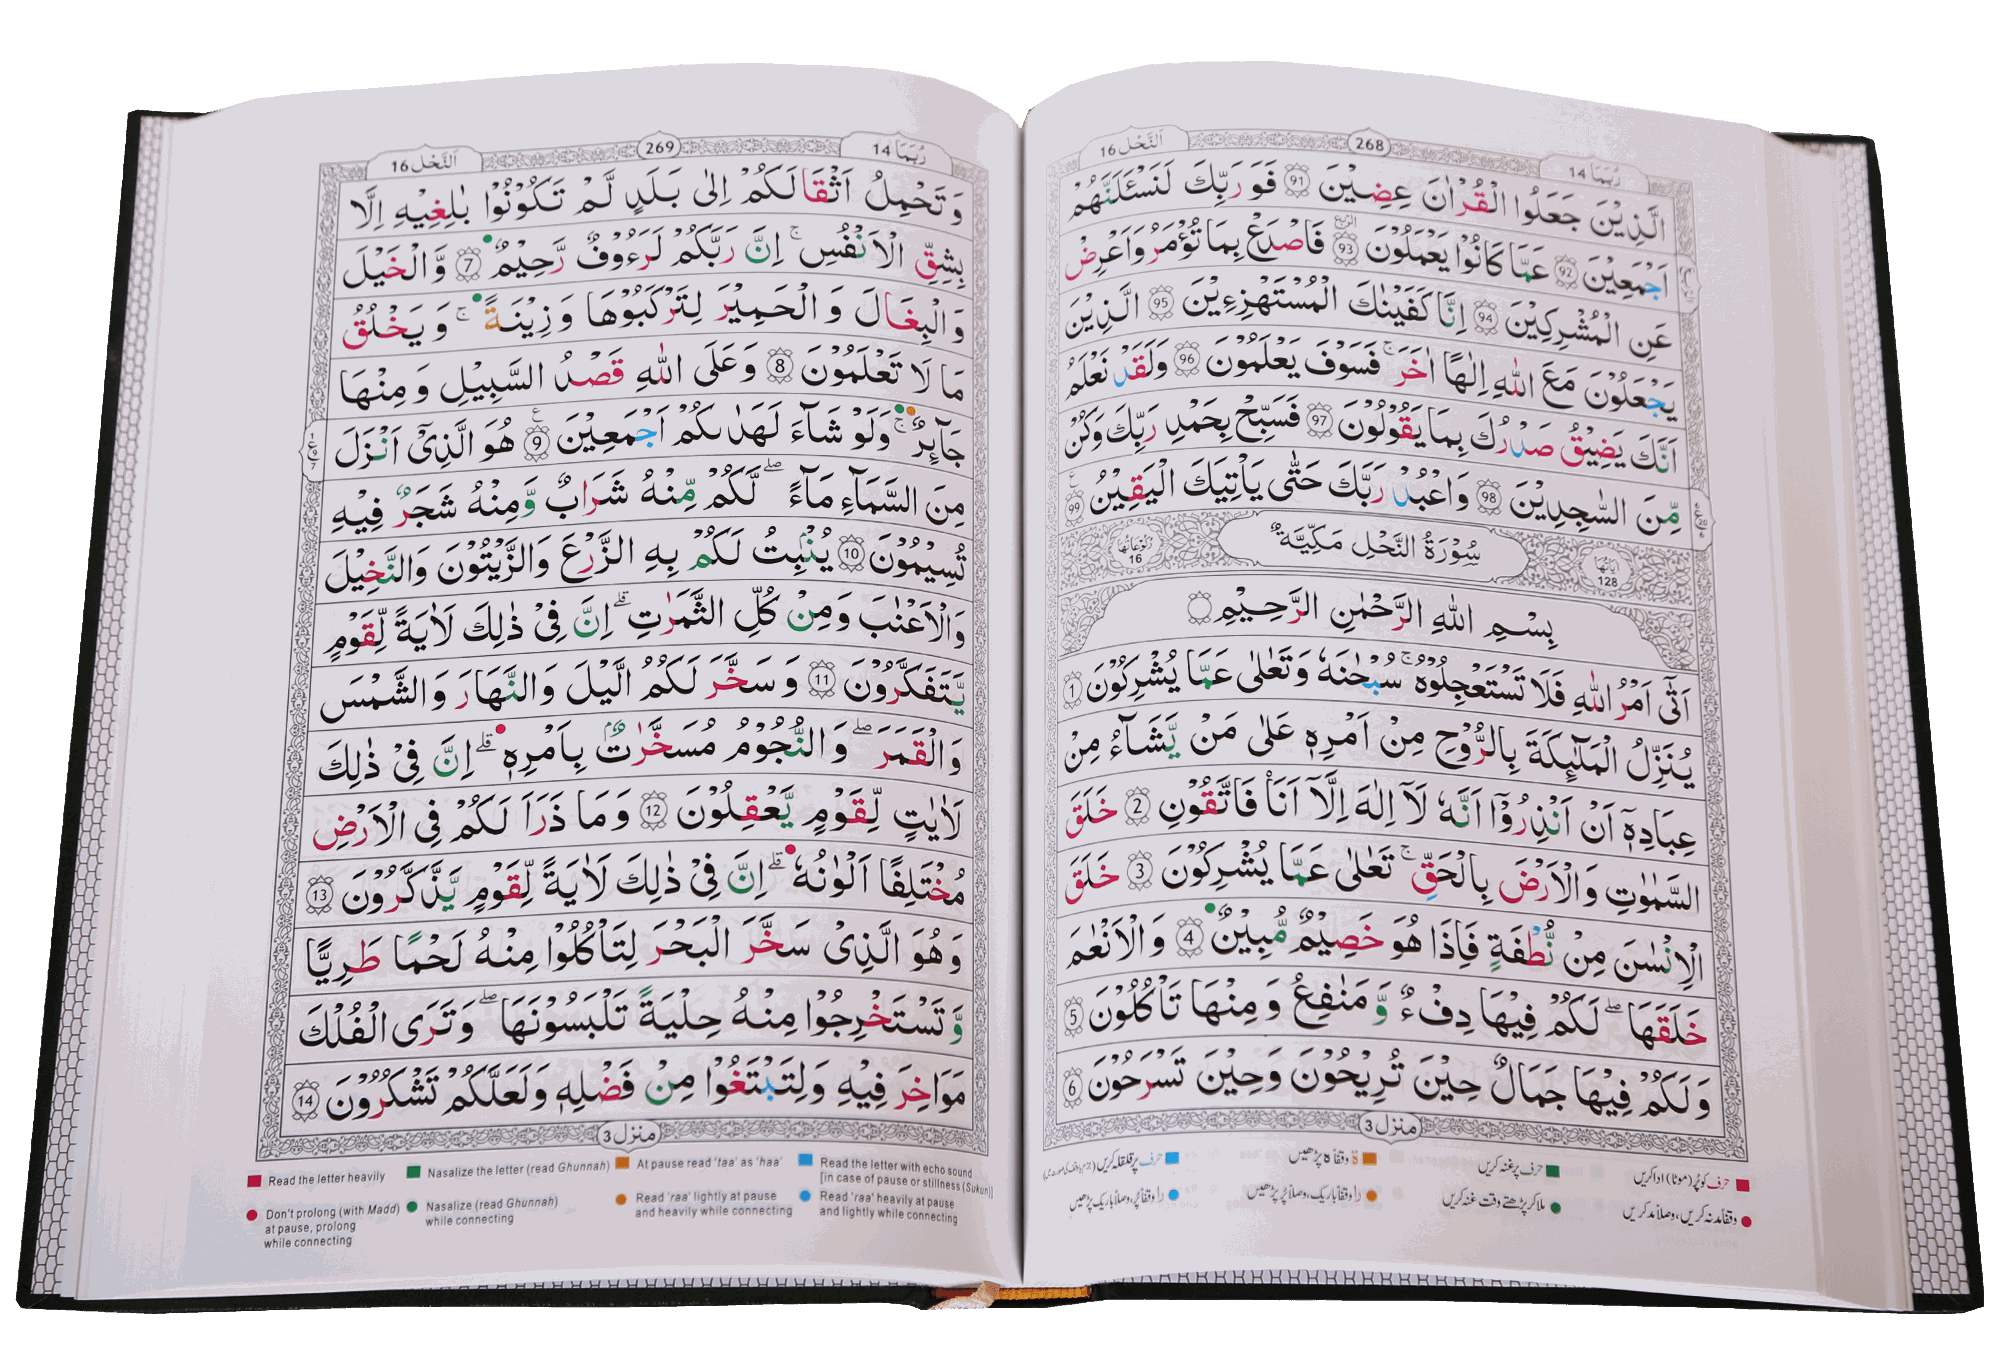 رُبَمَا 14
268
اَلنَّحْل 16
الَّذِيْنَ جَعَلُوا الْقُرْاٰنَ عِضِيْنَ 91 فَوَرَبِّكَ لَنَسْـَٔلَنَّهُمْ
اَجْمَعِيْنَ 92 عَمَّا كَانُوْا يَعْمَلُوْنَ 93 فَاصْدَعْ بِمَا تُؤْمَرُ وَاَعْرِضْ
عَنِ الْمُشْرِكِيْنَ 94 اِنَّا كَفَيْنٰكَ الْمُسْتَهْزِءِيْنَ 95 الَّذِيْنَ
يَجْعَلُوْنَ مَعَ اللّٰهِ اِلٰهًا اٰخَرَ ۚ فَسَوْفَ يَعْلَمُوْنَ 96 وَلَقَدْ نَعْلَمُ
اَنَّكَ يَضِيْقُ صَدْرُكَ بِمَا يَقُوْلُوْنَ 97 فَسَبِّحْ بِحَمْدِ رَبِّكَ وَكُنْ
مِّنَ السّٰجِدِيْنَ 98 وَاعْبُدْ رَبَّكَ حَتّٰى يَاْتِيَكَ الْيَقِيْنُ 99
اٰيَاتُهَا 128 سُوْرَةُ النَّحْلِ مَكِّيَّةٌ رُكُوْعَاتُهَا 16
بِسْمِ اللّٰهِ الرَّحْمٰنِ الرَّحِيْمِ
اَتٰٓى اَمْرُ اللّٰهِ فَلَا تَسْتَعْجِلُوْهُ ۚ سُبْحٰنَهٗ وَتَعٰلٰى عَمَّا يُشْرِكُوْنَ 1
يُنَزِّلُ الْمَلٰٓئِكَةَ بِالرُّوْحِ مِنْ اَمْرِهٖ عَلٰى مَنْ يَّشَآءُ مِنْ
عِبَادِهٖٓ اَنْ اَنْذِرُوْٓا اَنَّهٗ لَآ اِلٰهَ اِلَّآ اَنَا۠ فَاتَّقُوْنِ 2 خَلَقَ
السَّمٰوٰتِ وَالْاَرْضَ بِالْحَقِّ ۚ تَعٰلٰى عَمَّا يُشْرِكُوْنَ 3 خَلَقَ
الْاِنْسٰنَ مِنْ نُّطْفَةٍ فَاِذَا هُوَ خَصِيْمٌ مُّبِيْنٌ 4 وَالْاَنْعٰمَ
خَلَقَهَا ۖ لَكُمْ فِيْهَا دِفْءٌ وَّمَنٰفِعُ وَمِنْهَا تَاْكُلُوْنَ 5
وَلَكُمْ فِيْهَا جَمَالٌ حِيْنَ تُرِيْحُوْنَ وَحِيْنَ تَسْرَحُوْنَ 6
منزل 3
حرف کو پُر (موٹا) ادا کریں
حرف پر غنہ کریں
ۃ وقفاً ہ پڑھیں
حرف پر قلقلہ کریں
وقفاً مد نہ کریں، وصلاً مد کریں
ملا کر پڑھتے وقت غنہ کریں
را وقفاً باریک، وصلاً پُر پڑھیں
را وقفاً پُر، وصلاً باریک پڑھیں
رُبَمَا 14
269
اَلنَّحْل 16
وَتَحْمِلُ اَثْقَالَكُمْ اِلٰى بَلَدٍ لَّمْ تَكُوْنُوْا بٰلِغِيْهِ اِلَّا
بِشِقِّ الْاَنْفُسِ ۚ اِنَّ رَبَّكُمْ لَرَءُوْفٌ رَّحِيْمٌ 7 وَّالْخَيْلَ
وَالْبِغَالَ وَالْحَمِيْرَ لِتَرْكَبُوْهَا وَزِيْنَةً ۚ وَيَخْلُقُ
مَا لَا تَعْلَمُوْنَ 8 وَعَلَى اللّٰهِ قَصْدُ السَّبِيْلِ وَمِنْهَا
جَآئِرٌ ۚ وَلَوْ شَآءَ لَهَدٰىكُمْ اَجْمَعِيْنَ 9 هُوَ الَّذِيْٓ اَنْزَلَ
مِنَ السَّمَآءِ مَآءً ۖ لَّكُمْ مِّنْهُ شَرَابٌ وَّمِنْهُ شَجَرٌ فِيْهِ
تُسِيْمُوْنَ 10 يُنْۢبِتُ لَكُمْ بِهِ الزَّرْعَ وَالزَّيْتُوْنَ وَالنَّخِيْلَ
وَالْاَعْنٰبَ وَمِنْ كُلِّ الثَّمَرٰتِ ۗ اِنَّ فِيْ ذٰلِكَ لَاٰيَةً لِّقَوْمٍ
يَّتَفَكَّرُوْنَ 11 وَسَخَّرَ لَكُمُ الَّيْلَ وَالنَّهَارَ وَالشَّمْسَ
وَالْقَمَرَ ۖ وَالنُّجُوْمُ مُسَخَّرٰتٌۢ بِاَمْرِهٖ ۗ اِنَّ فِيْ ذٰلِكَ
لَاٰيٰتٍ لِّقَوْمٍ يَّعْقِلُوْنَ 12 وَمَا ذَرَاَ لَكُمْ فِى الْاَرْضِ
مُخْتَلِفًا اَلْوَانُهٗ ۗ اِنَّ فِيْ ذٰلِكَ لَاٰيَةً لِّقَوْمٍ يَّذَّكَّرُوْنَ 13
وَهُوَ الَّذِيْ سَخَّرَ الْبَحْرَ لِتَاْكُلُوْا مِنْهُ لَحْمًا طَرِيًّا
وَّتَسْتَخْرِجُوْا مِنْهُ حِلْيَةً تَلْبَسُوْنَهَا ۖ وَتَرَى الْفُلْكَ
مَوَاخِرَ فِيْهِ وَلِتَبْتَغُوْا مِنْ فَضْلِهٖ وَلَعَلَّكُمْ تَشْكُرُوْنَ 14
منزل 3
Read the letter heavily
Nasalize the letter (read Ghunnah)
At pause read 'taa' as 'haa'
Read the letter with echo sound
[in case of pause or stillness (Sukun)]
Don't prolong (with Madd)
at pause, prolong
while connecting
Nasalize (read Ghunnah)
while connecting
Read 'raa' lightly at pause
and heavily while connecting
Read 'raa' heavily at pause
and lightly while connecting